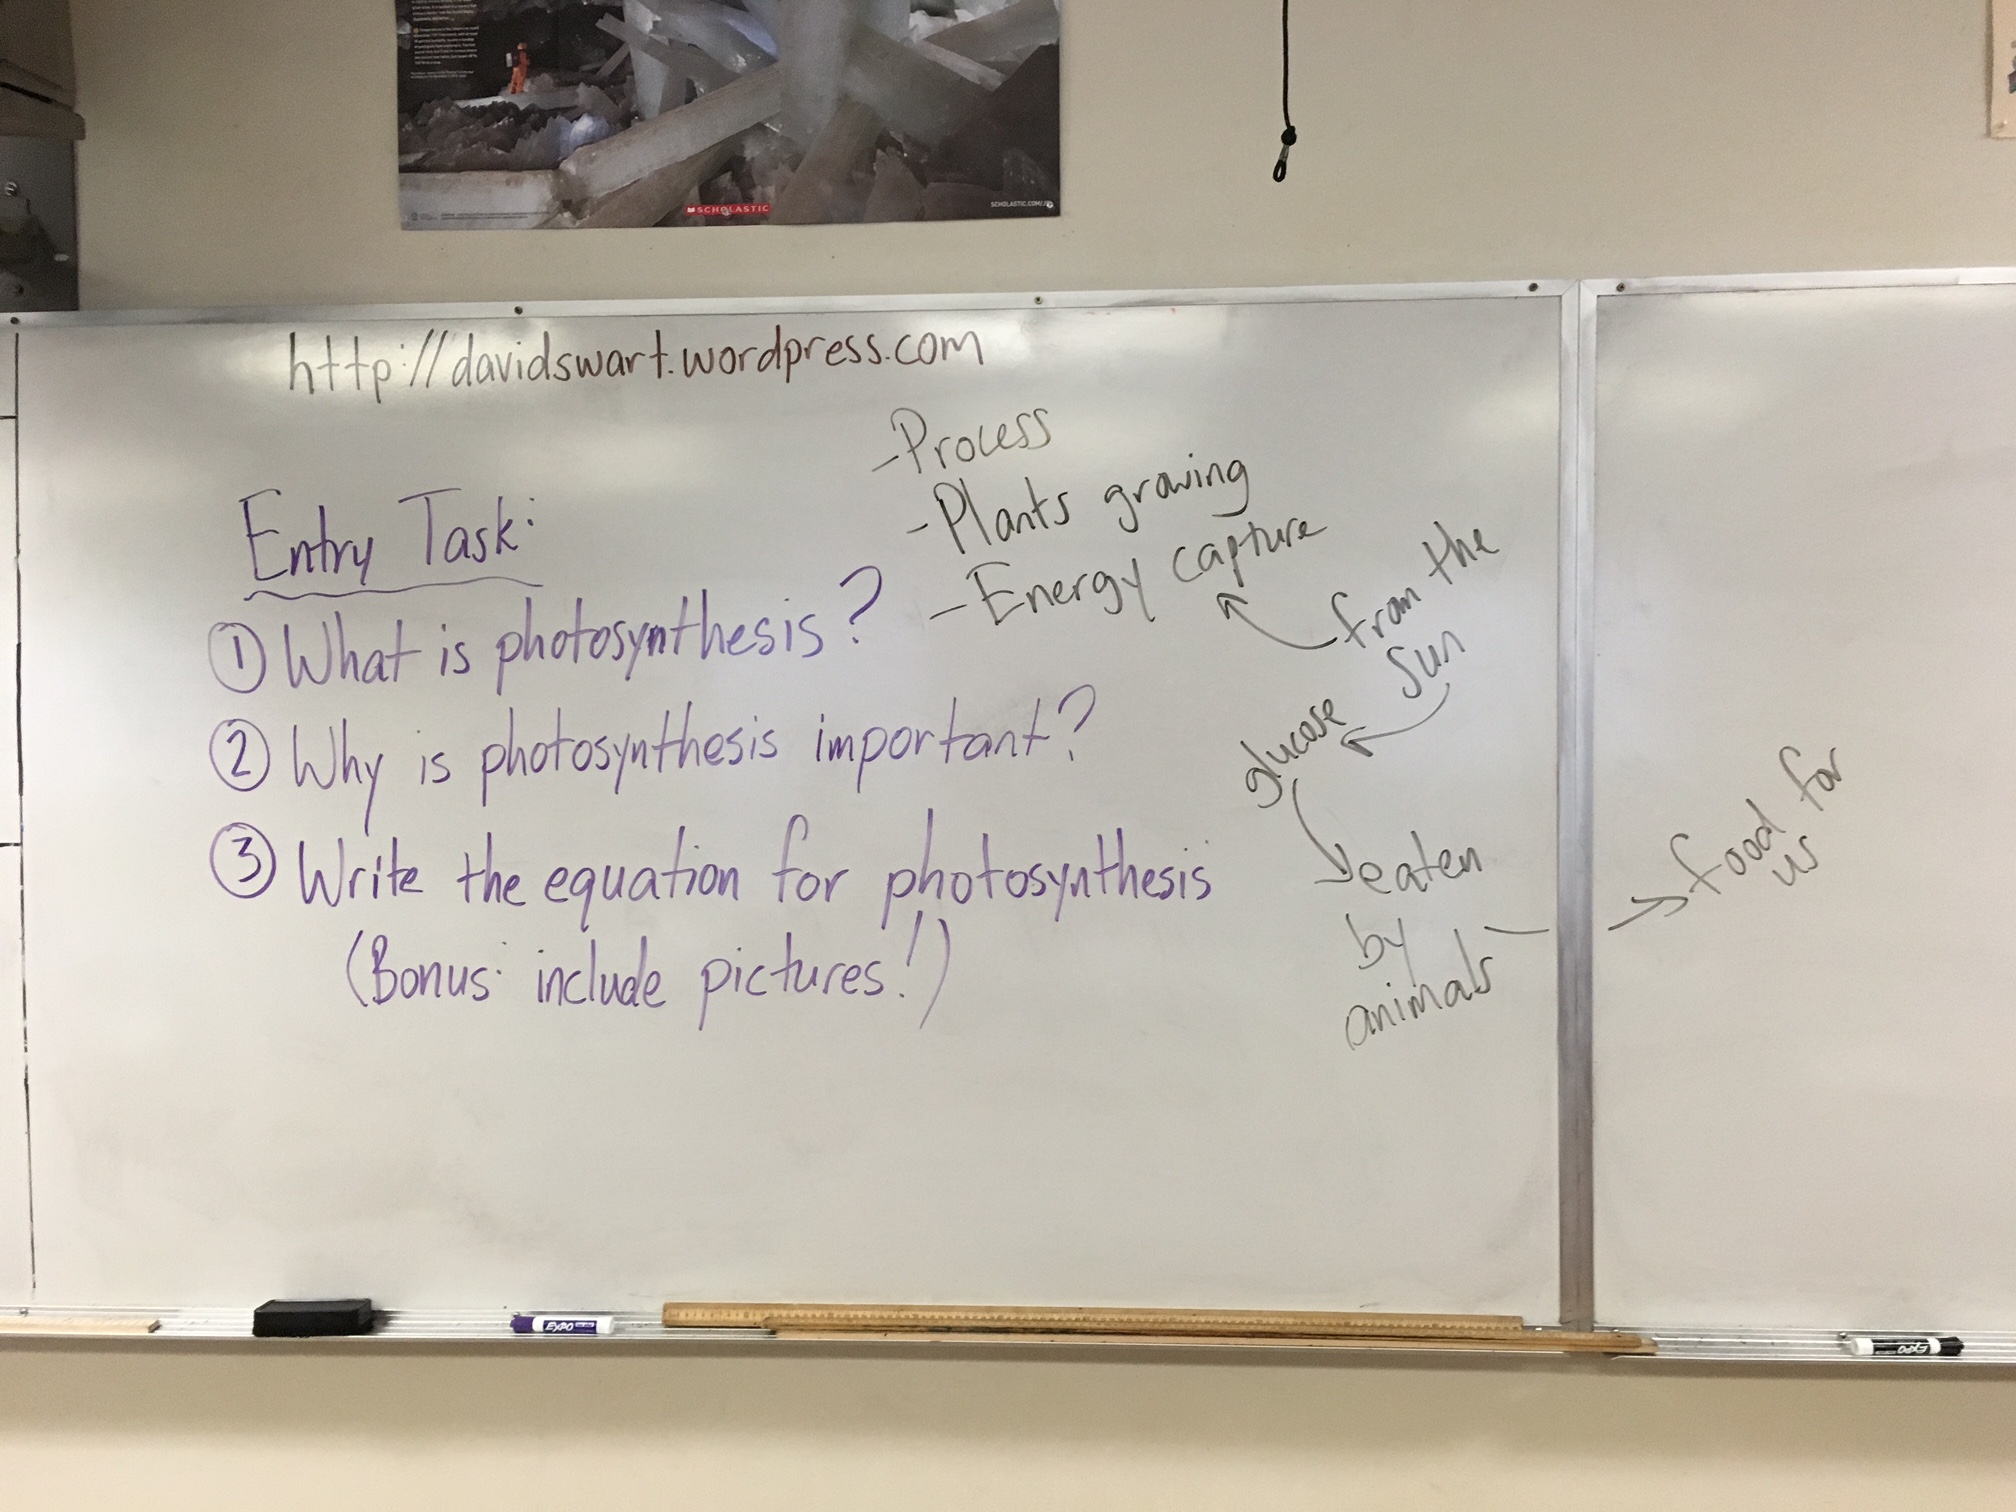 SCHOLASTIC
http://davidswart.wordpress.com
Entry Task:
① What is photosynthesis?
② Why is photosynthesis important?
③ Write the equation for photosynthesis
(Bonus: include pictures!)
-Process
-Plants growing
-Energy capture
from the
sun
glucose
eaten
by
animals
food for
us
EXPO
EXPO